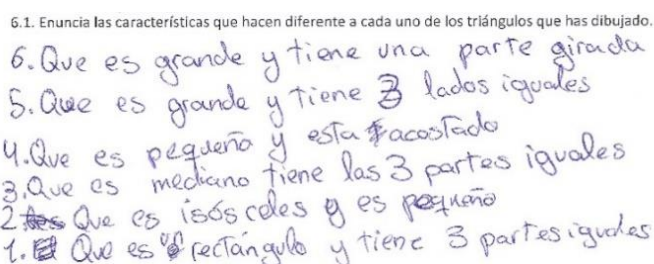 6.1. Enuncia las características que hacen diferente a cada uno de los triángulos que has dibujado.
6. Que es grande y tiene una parte girada
5. Que es grande y tiene 3 lados iguales
4. Que es pequeño y esta acostado
3. Que es mediano tiene las 3 partes iguales
2. Que es isósceles y es pequeño
1. Que es un rectángulo y tiene 3 partes iguales